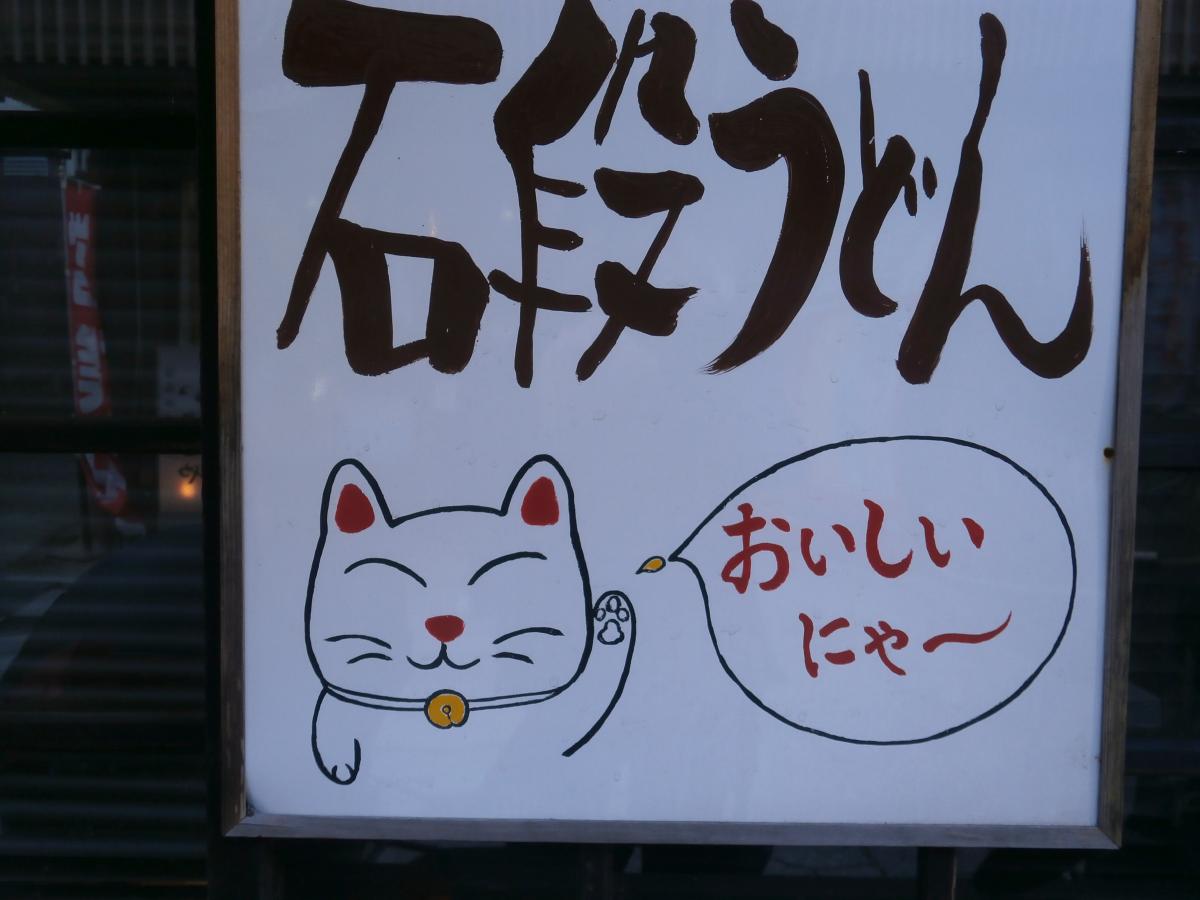 石段うどん
おいしい
にゃ～